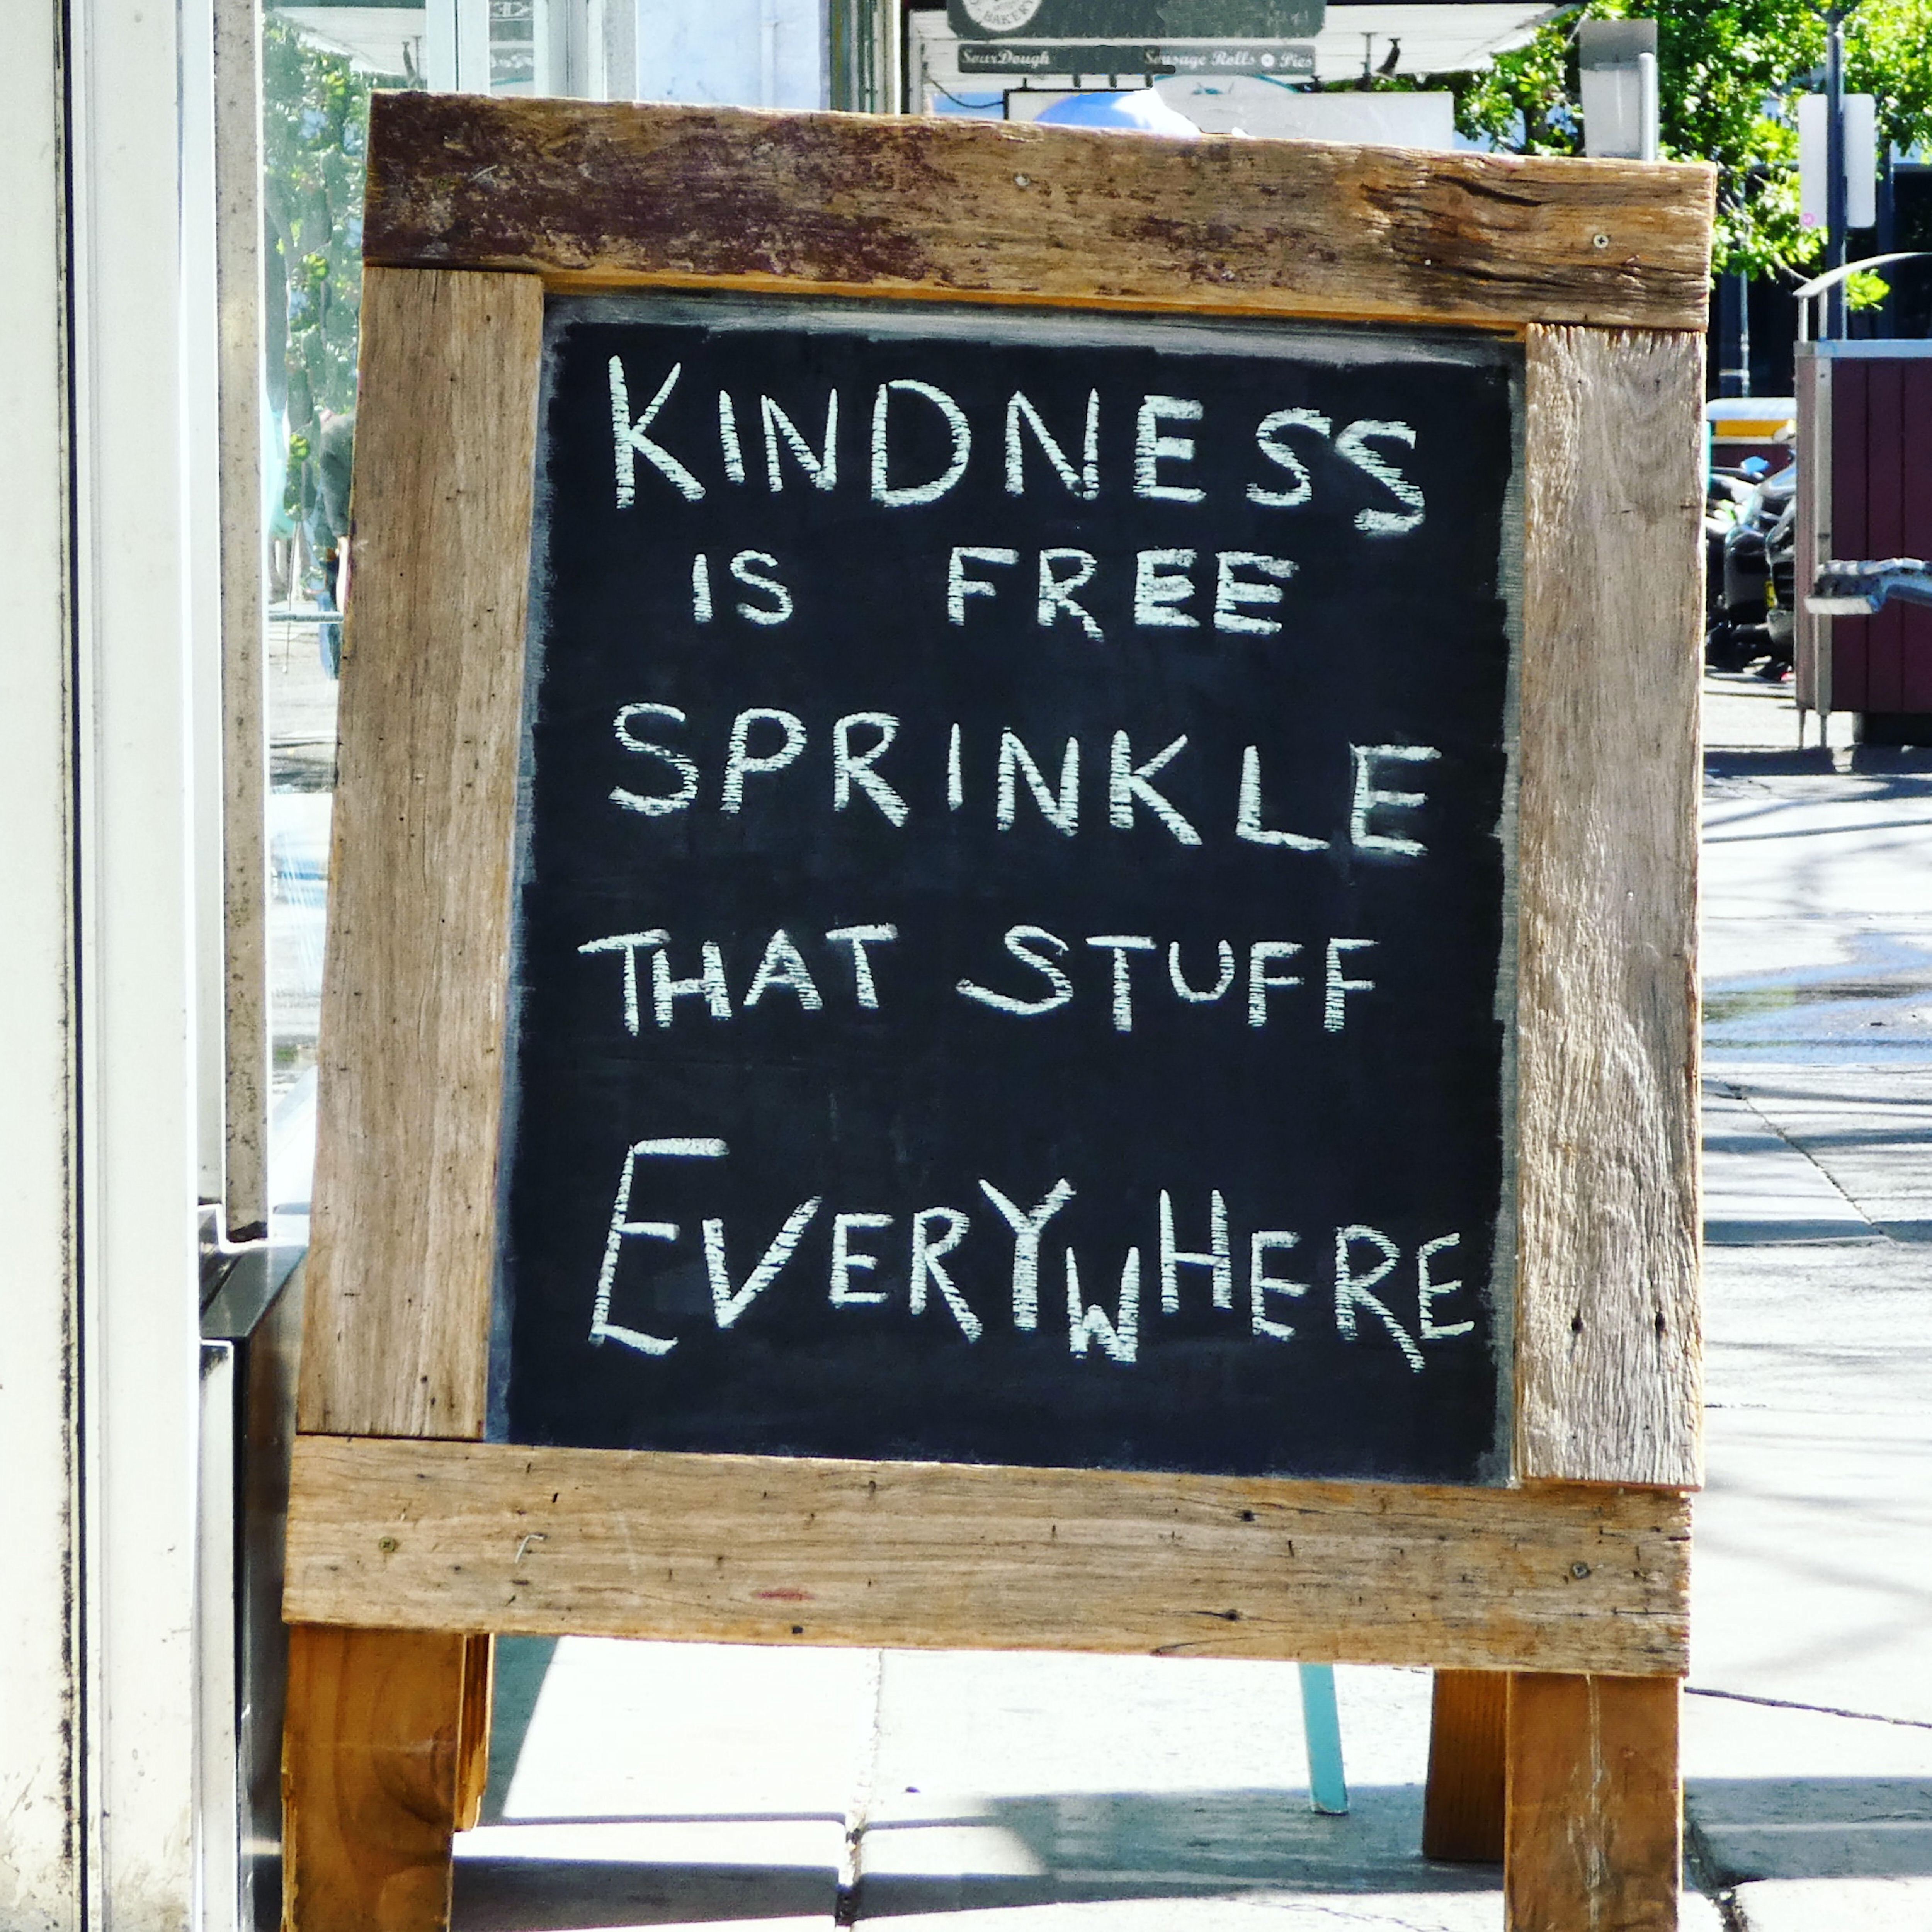 BAKERY
SourDough Sausage Rolls Pies
KINDNESS
IS FREE
SPRINKLE
THAT STUFF
EVERYWHERE